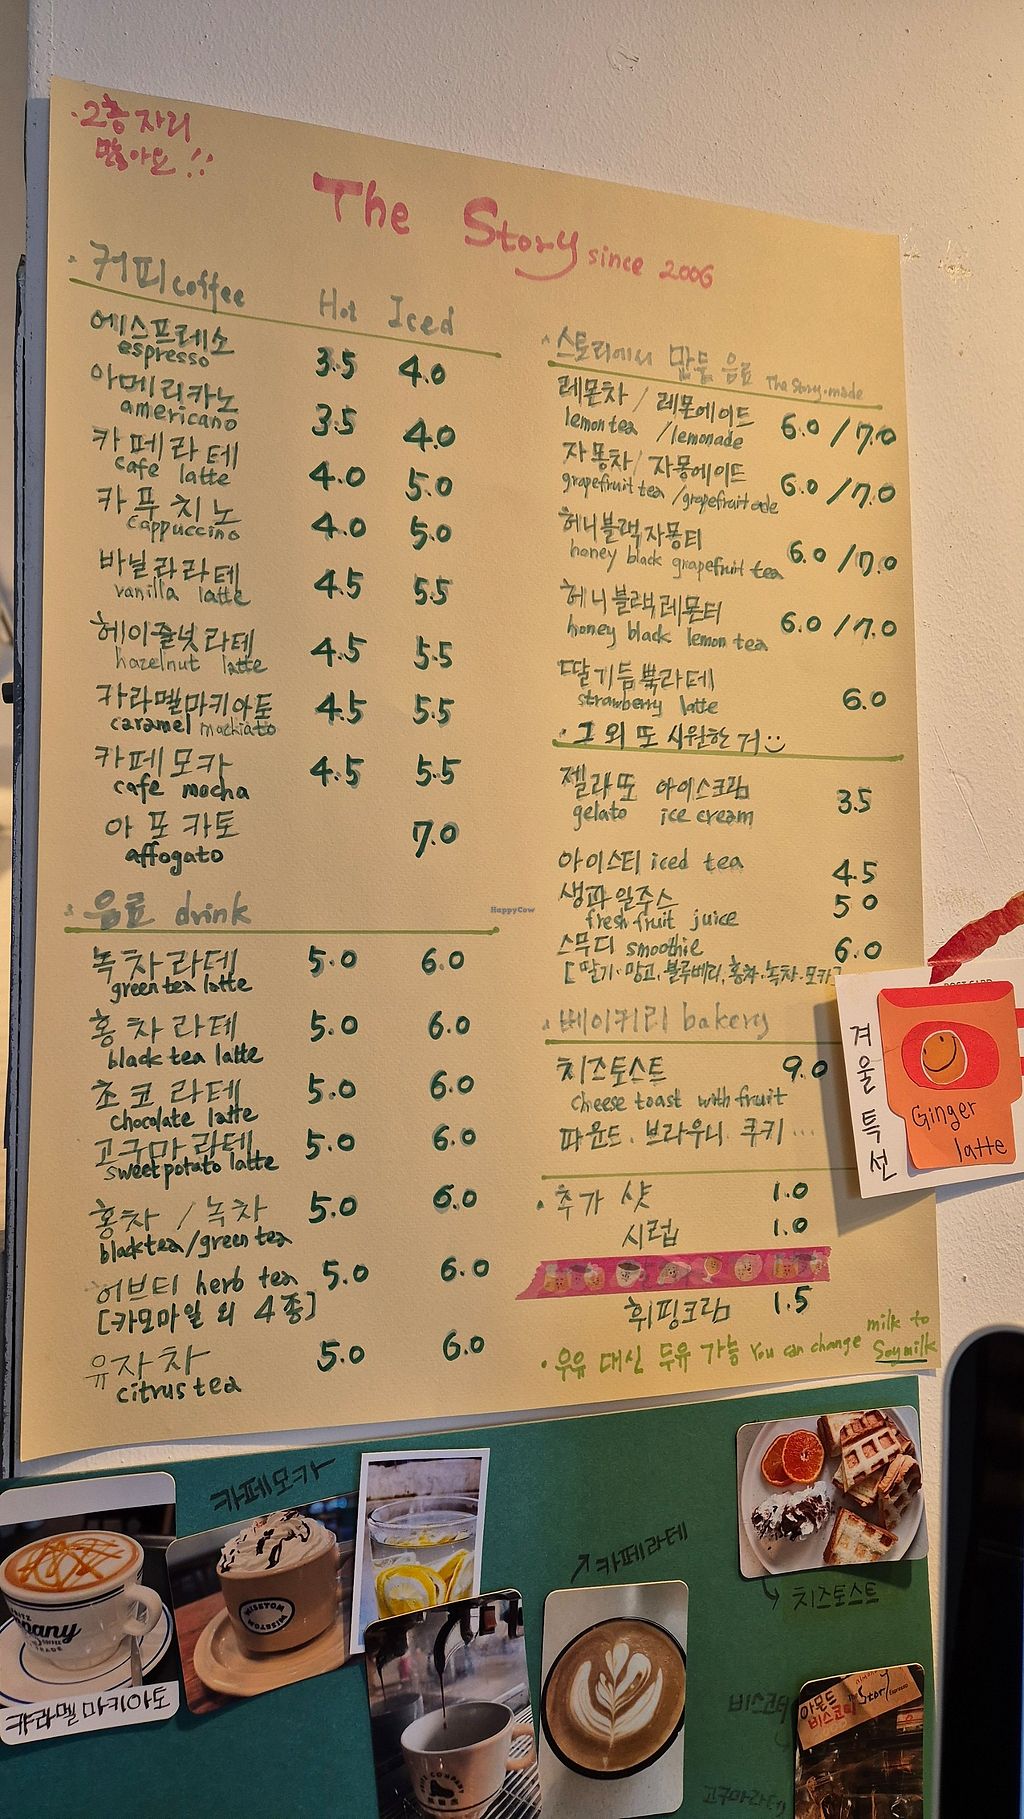 ·2층 자리
많아요!!
The Story since 2006
·커피 coffee Hot Iced
에스프레소 3.5 4.0
espresso
아메리카노 3.5 4.0
americano
카페라테 4.0 5.0
cafe latte
카푸치노 4.0 5.0
cappuccino
바닐라라테 4.5 5.5
vanilla latte
헤이즐넛라테 4.5 5.5
hazelnut latte
카라멜마키아토 4.5 5.5
caramel machiato
카페모카 4.5 5.5
cafe mocha
아포카토 7.0
affogato
·음료 drink
녹차라테 5.0 6.0
green tea latte
홍차라테 5.0 6.0
black tea latte
초코라테 5.0 6.0
chocolate latte
고구마라테 5.0 6.0
sweet potato latte
홍차/녹차 5.0 6.0
black tea/green tea
허브티 herb tea 5.0 6.0
[카모마일 외 4종]
유자차 5.0 6.0
citrus tea
·스토리에서 만든 음료 The Story·made
레몬차/레몬에이드 6.0/7.0
lemon tea/lemonade
자몽차/자몽에이드 6.0/7.0
grapefruit tea/grapefruit ade
허니블랙자몽티 6.0/7.0
honey black grapefruit tea
허니블랙레몬티 6.0/7.0
honey black lemon tea
딸기듬뿍라테 6.0
strawberry latte
·그 외 또 시원한 거
젤라또 아이스크림 3.5
gelato ice cream
아이스티 iced tea 4.5
생과일주스 5.0
fresh fruit juice
스무디 smoothie 6.0
[딸기·망고·블루베리·홍차·녹차·모카]
·베이커리 bakery
치즈토스트 9.0
cheese toast with fruit
파운드. 브라우니. 쿠키...
·추가 샷 1.0
시럽 1.0
휘핑크림 1.5
·우유 대신 두유 가능 You can change milk to Soymilk
겨울특선
Ginger latte
HappyCow
카페모카
카라멜마키아토
카페라테
치즈토스트
비스코티
아몬드
비스코티
Story
고구마라테
MISSTOM